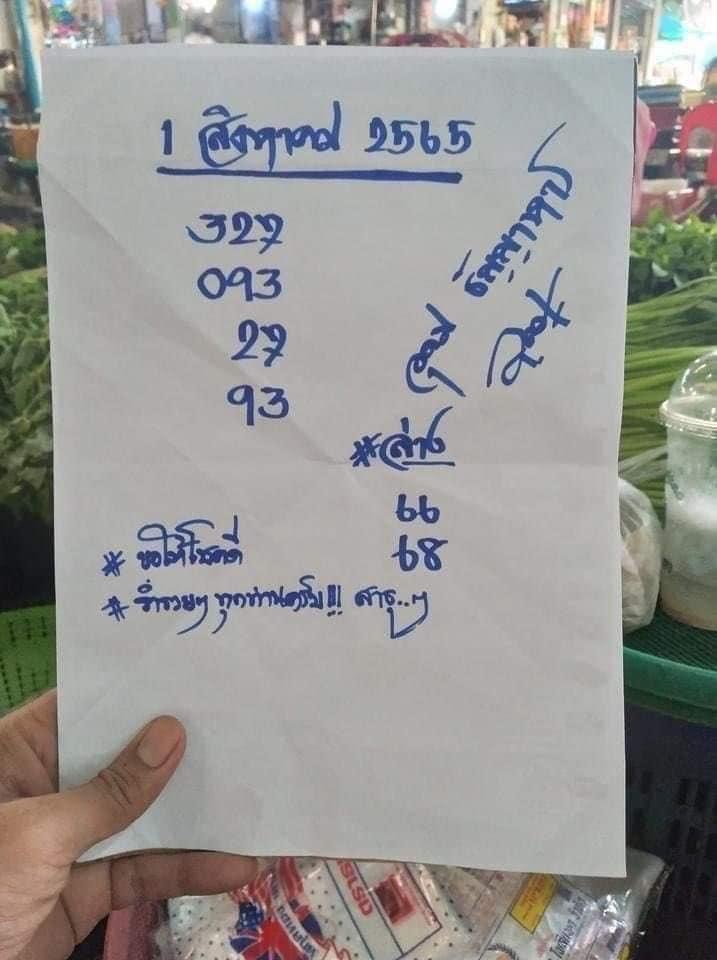 1 สิงหาคม 2565
327
093
27
93
*ล่าง
66
68
* ขอให้โชคดี
* ร่ำรวยๆ ทุกท่านครับ!!! สาธุ..ๆ